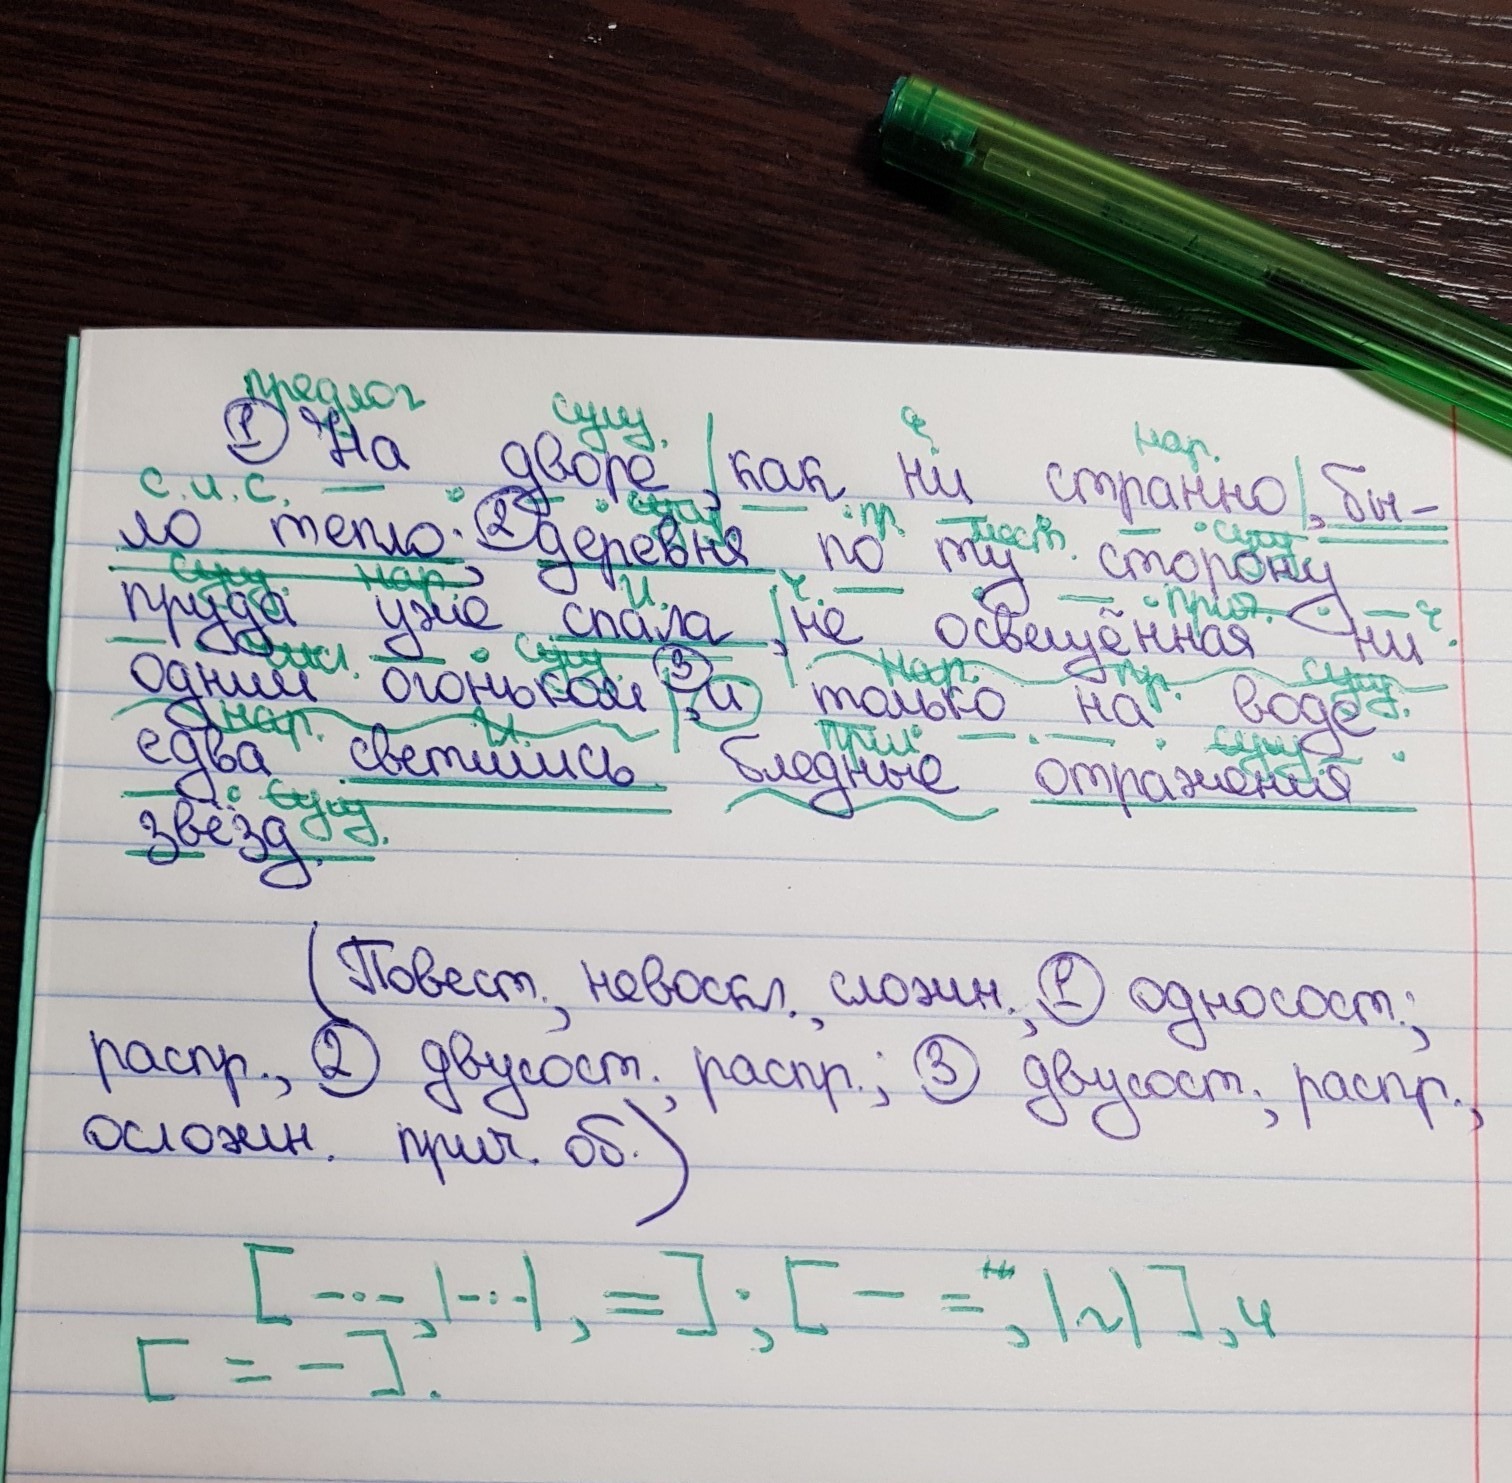 предлог сущ. ч. нар.
① На дворе, как ни странно, бы-
с.и.с. сущ. пр. мест. сущ.
ло тепло; ② деревня по ту сторону
сущ. нар. ч. прил. ч.
пруда уже спала, не освещённая ни
сущ. нар. пр. сущ.
одним огоньком, ③ и только на воде
нар. прил. сущ.
едва светились бледные отражения
сущ.
звёзд.
(Повест., невоскл., сложн., ① односост.;
распр., ② двусост., распр.; ③ двусост., распр.,
осложн. прич. об.)
[-·-·-,|-·-|, =]; [- =, |~|], и
[= -].